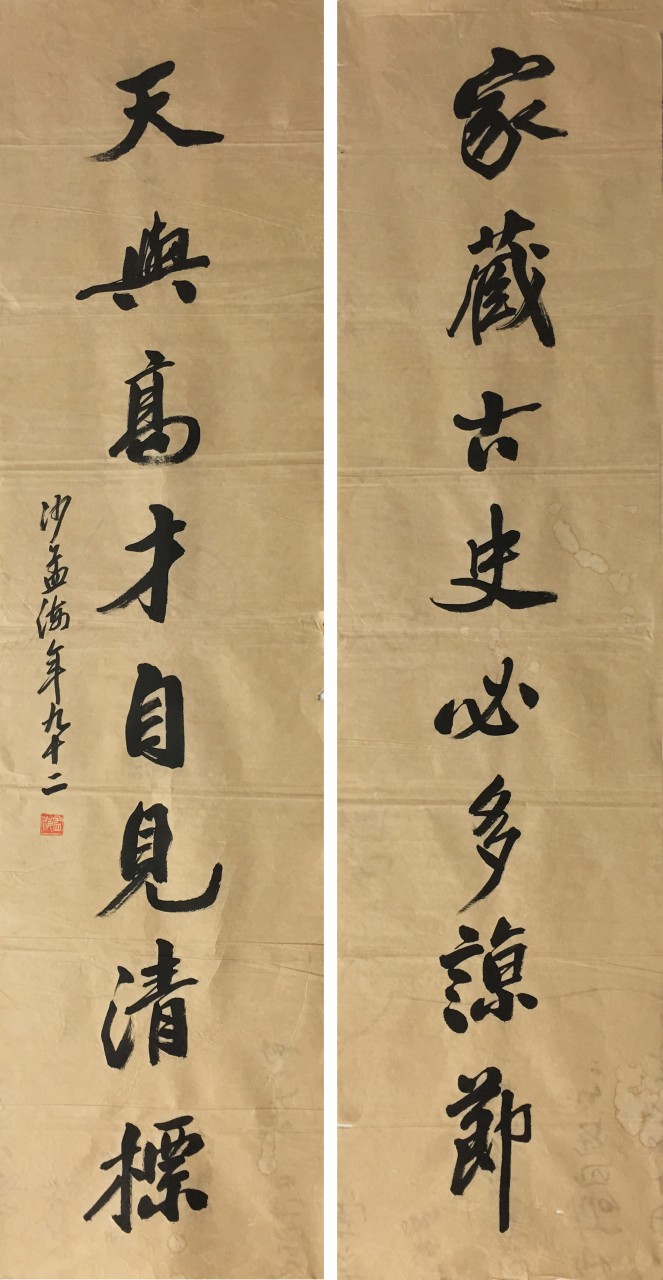 家藏古史必多諒節
天與高才自見清標
沙孟海年九十二
孟海